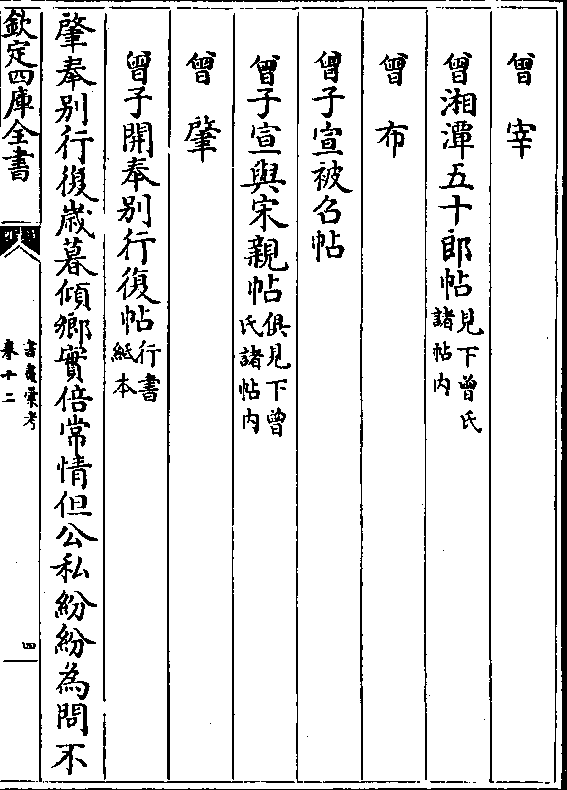 曾宰
曾湘潭五十郎帖見下曾氏
諸帖内
曾布
曾子宣被召帖
曾子宣與宋親帖俱見下曾
氏諸帖内
曾肇
曾子開奉别行復帖行書
紙本
肇奉别行復歳暮傾鄉實倍常情但公私紛紛為問不
欽定四庫全書
書畫彙考
卷十二
四